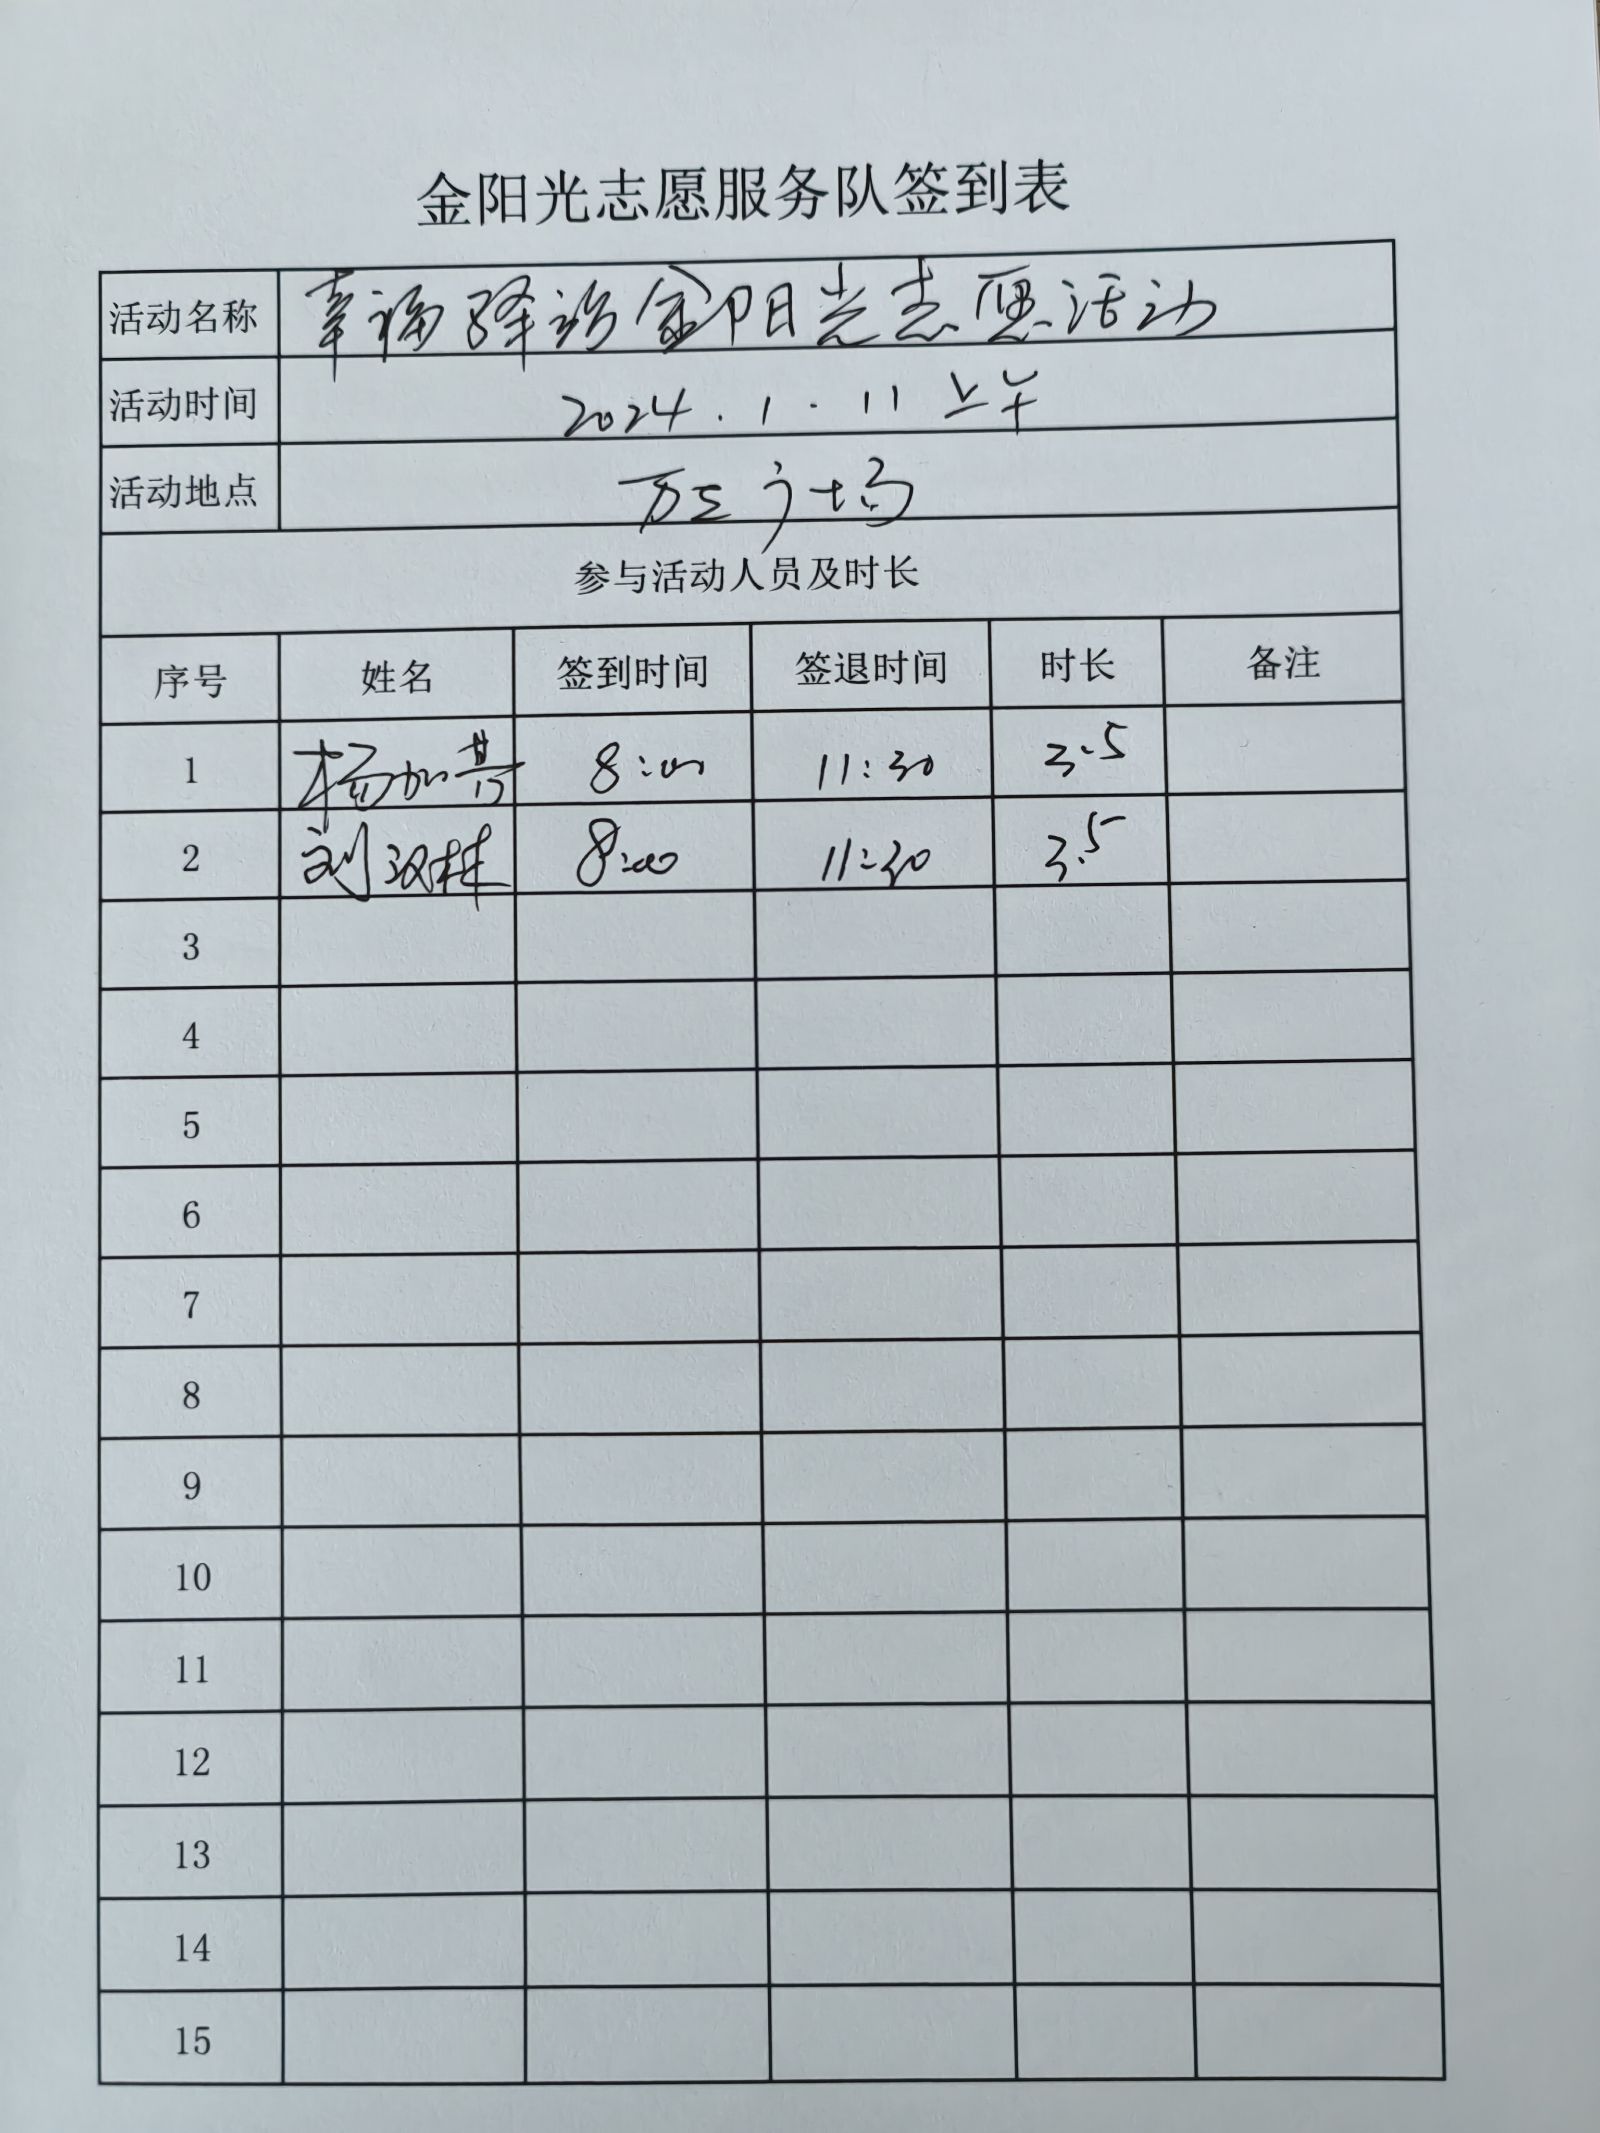 金阳光志愿服务队签到表
活动名称 幸福驿站金阳光志愿活动
活动时间 2024.1.11 上午
活动地点 万云广场
参与活动人员及时长
序号 姓名 签到时间 签退时间 时长 备注
1 杨加 8:00 11:30 3.5
2 刘汉林 8:00 11:30 3.5
3
4
5
6
7
8
9
10
11
12
13
14
15